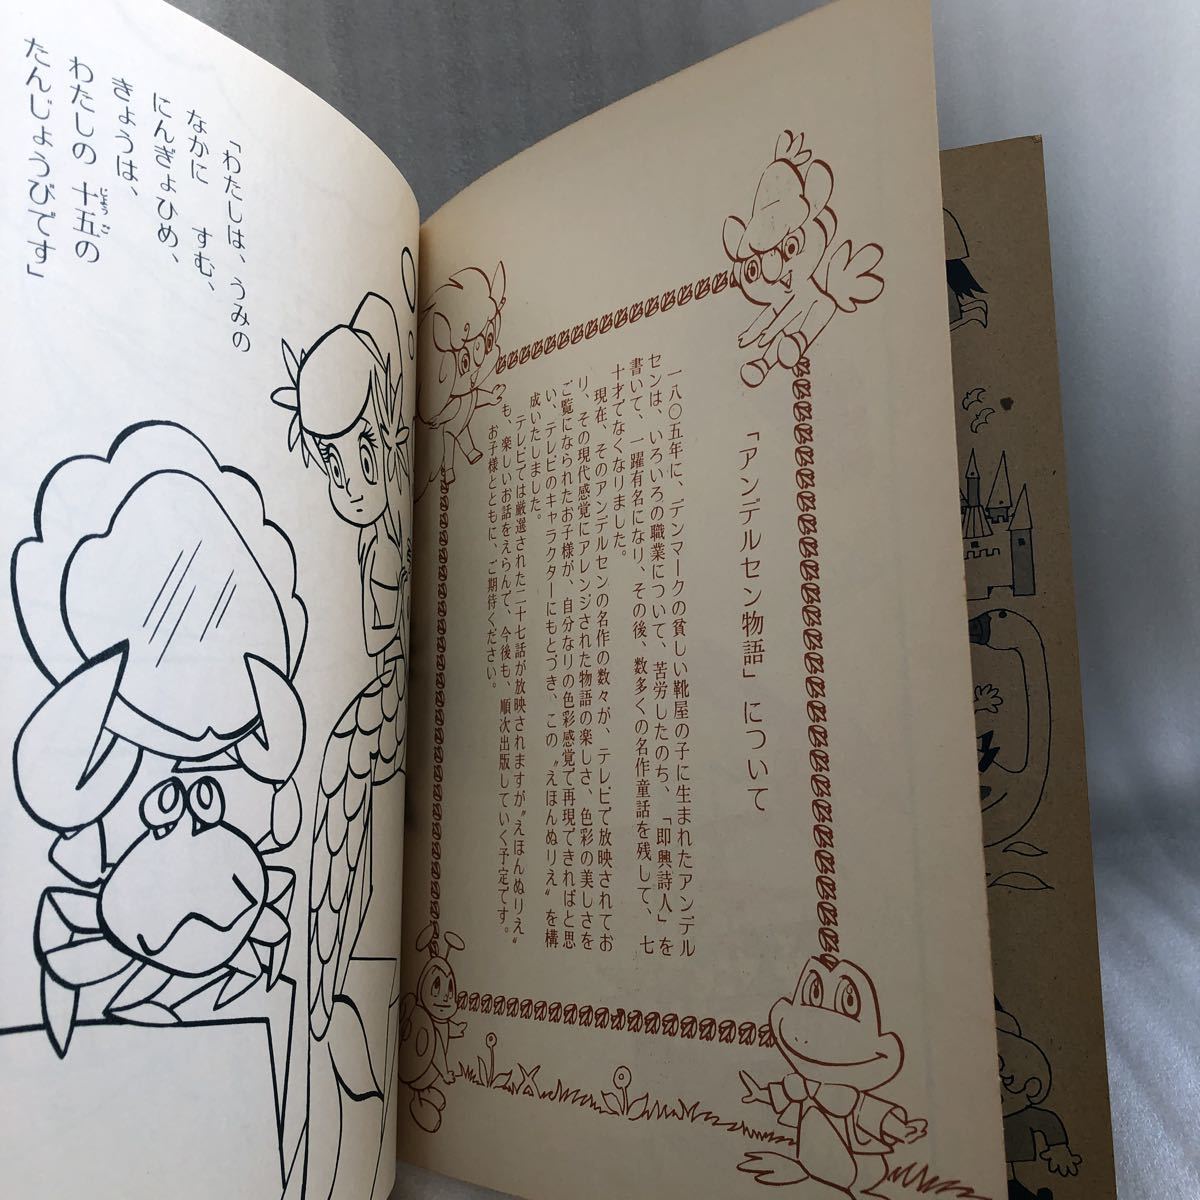 「わたしは、うみの
なかに すむ、
にんぎょひめ、
きょうは、
わたしの 十五の
じゅうご
たんじょうびです」
「アンデルセン物語」について
一八〇五年に、デンマークの貧しい靴屋の子に生まれたアンデル
センは、いろいろの職業について、苦労したのち、「即興詩人」を
書いて、一躍有名になり、その後、数多くの名作童話を残して、七
十才でなくなりました。
現在、そのアンデルセンの名作の数々が、テレビで放映されてお
り、その現代感覚にアレンジされた物語の楽しさ、色彩の美しさを
ご覧になられたお子様が、自分なりの色彩感覚で再現できればと思
い、テレビのキャラクターにもとづき、この〝えほんぬりえ〟を構
成いたしました。
テレビでは厳選された二十七話が放映されますが〝えほんぬりえ〟
も、楽しいお話をえらんで、今後も、順次出版していく予定です。
お子様とともに、ご期待ください。